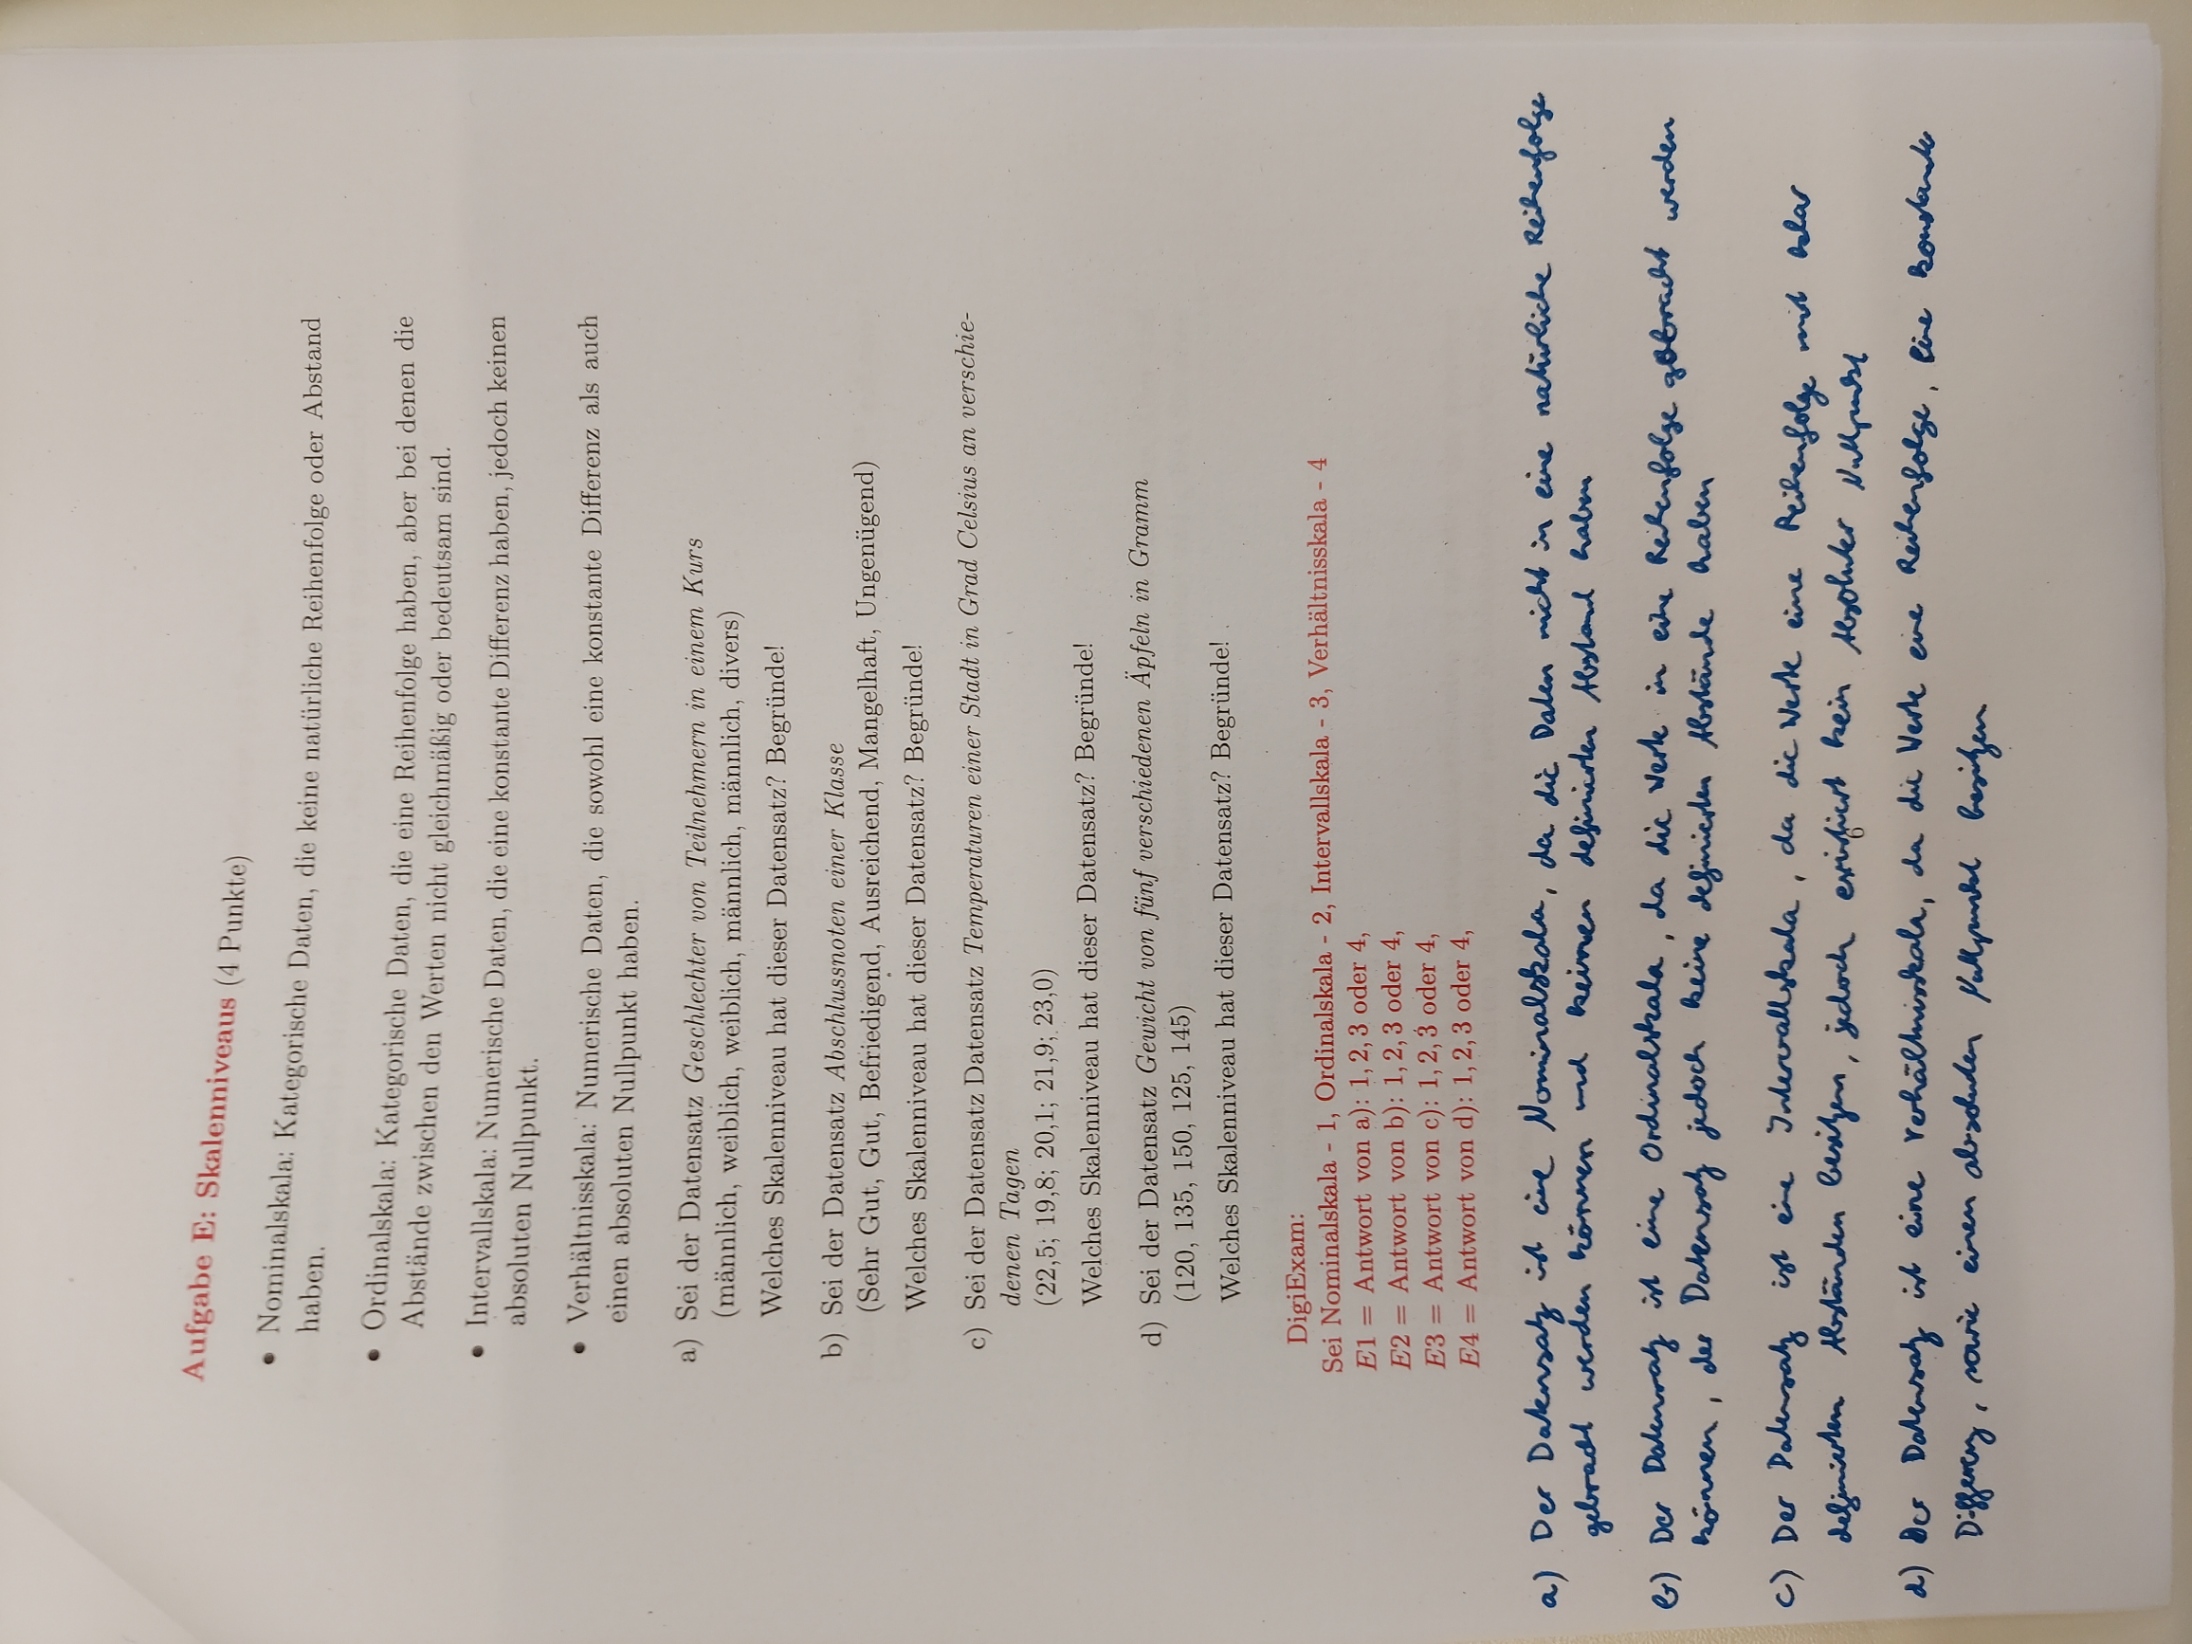 Aufgabe E: Skalenniveaus (4 Punkte)
• Nominalskala: Kategorische Daten, die keine natürliche Reihenfolge oder Abstand
haben.
• Ordinalskala: Kategorische Daten, die eine Reihenfolge haben, aber bei denen die
Abstände zwischen den Werten nicht gleichmäßig oder bedeutsam sind.
• Intervallskala: Numerische Daten, die eine konstante Differenz haben, jedoch keinen
absoluten Nullpunkt.
• Verhältnisskala: Numerische Daten, die sowohl eine konstante Differenz als auch
einen absoluten Nullpunkt haben.
a) Sei der Datensatz Geschlechter von Teilnehmern in einem Kurs
(männlich, weiblich, weiblich, männlich, männlich, divers)
Welches Skalenniveau hat dieser Datensatz? Begründe!
b) Sei der Datensatz Abschlussnoten einer Klasse
(Sehr Gut, Gut, Befriedigend, Ausreichend, Mangelhaft, Ungenügend)
Welches Skalenniveau hat dieser Datensatz? Begründe!
c) Sei der Datensatz Datensatz Temperaturen einer Stadt in Grad Celsius an verschie-
denen Tagen
(22,5; 19,8; 20,1; 21,9; 23,0)
Welches Skalenniveau hat dieser Datensatz? Begründe!
d) Sei der Datensatz Gewicht von fünf verschiedenen Äpfeln in Gramm
(120, 135, 150, 125, 145)
Welches Skalenniveau hat dieser Datensatz? Begründe!
DigiExam:
Sei Nominalskala - 1, Ordinalskala - 2, Intervallskala - 3, Verhältnisskala - 4
E1 = Antwort von a): 1, 2, 3 oder 4,
E2 = Antwort von b): 1, 2, 3 oder 4,
E3 = Antwort von c): 1, 2, 3 oder 4,
E4 = Antwort von d): 1, 2, 3 oder 4,
a) Der Datensatz ist eine Nominalskala, da die Daten nicht in eine natürliche Reihenfolge
gebracht werden können und keinen definierten Abstand haben
b) Der Datensatz ist eine Ordinalskala, da die Werte in eine Reihenfolge gebracht werden
können, der Datensatz jedoch keine definierten Abstände haben
c) Der Datensatz ist eine Intervallskala, da die Werte eine Reihenfolge mit klar
definierten Abständen besitzen, jedoch existiert kein Absoluter Nullpunkt
6
d) Der Datensatz ist eine Verhältnisskala, da die Werte eine Reihenfolge, eine konstante
Differenz, sowie einen absoluten Nullpunkt besitzen